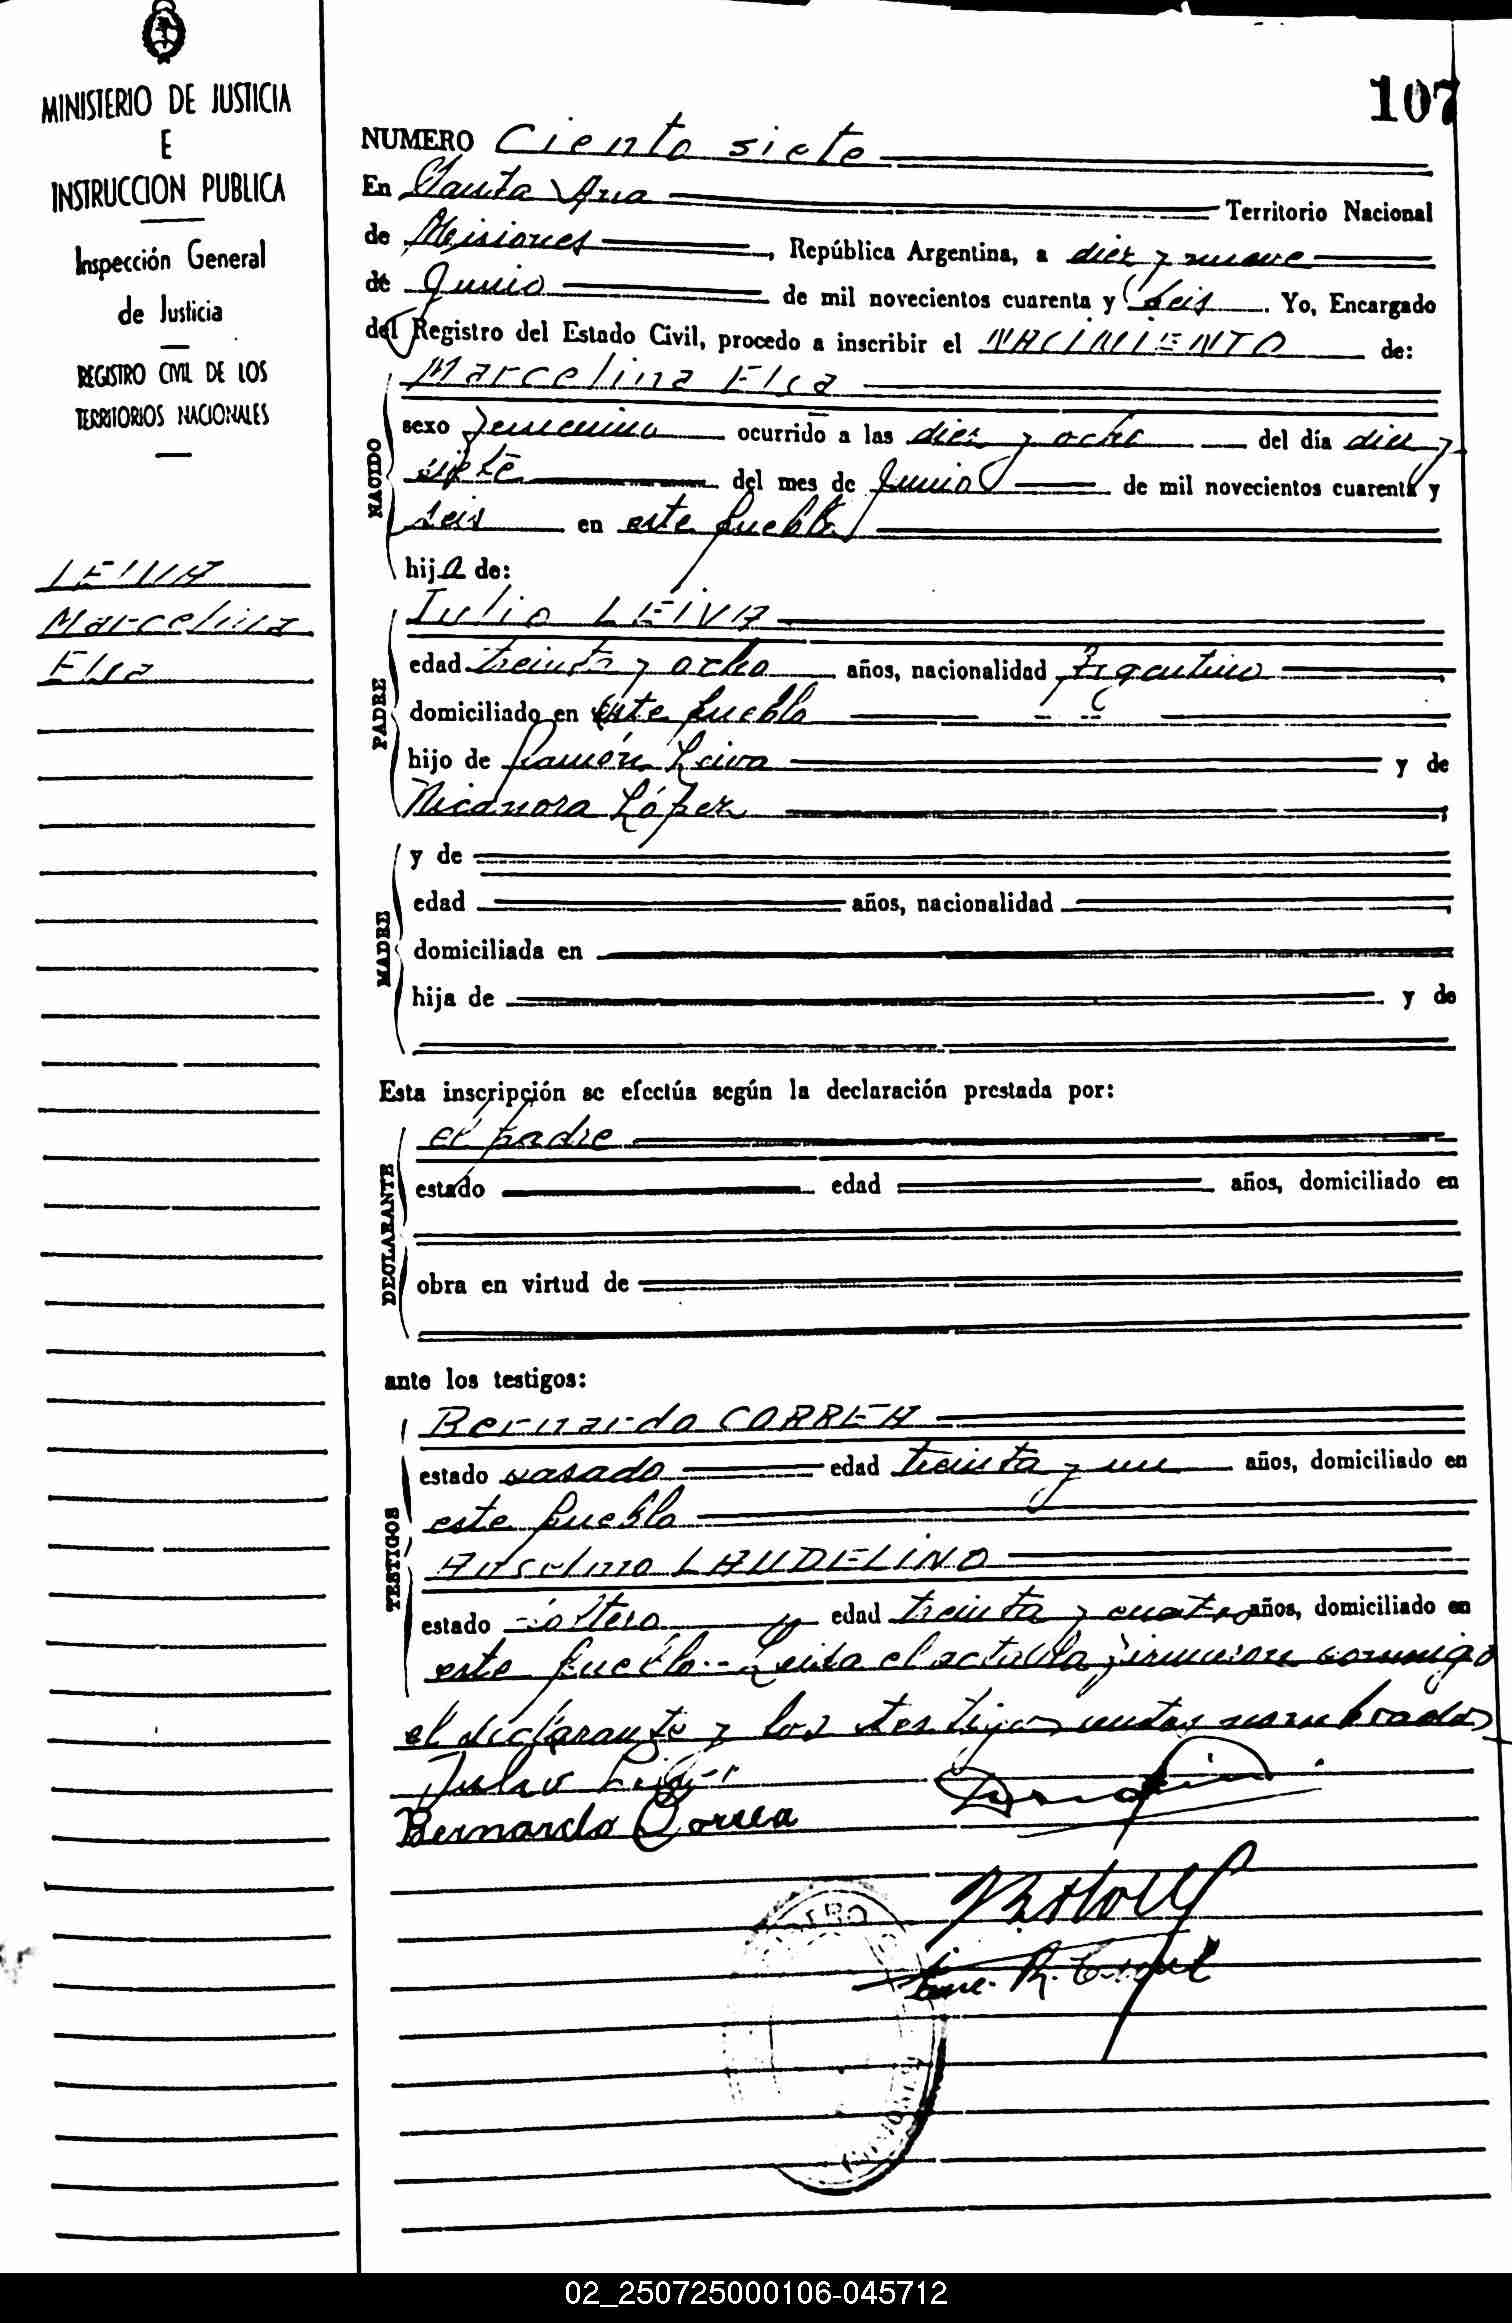 MINISTERIO DE JUSTICIA
E
INSTRUCCION PUBLICA
Inspección General
de Justicia
REGISTRO CIVIL DE LOS
TERRITORIOS NACIONALES
LEIVA
Marcelina
Elsa
107
NUMERO Ciento siete
En Santa Ana Territorio Nacional
de Misiones, República Argentina, a diez y nueve
de Junio de mil novecientos cuarenta y seis. Yo, Encargado
del Registro del Estado Civil, procedo a inscribir el NACIMIENTO de:
NACIDO
Marcelina Elsa
sexo femenino ocurrido a las diez y ocho del día diez y
siete del mes de Junio de mil novecientos cuarenta y
seis en este pueblo
hija de:
PADRE
Julio LEIVA
edad treinta y ocho años, nacionalidad Argentino
domiciliado en este pueblo
hijo de Ramón Leiva y de
Nicanora López
MADRE
y de
edad años, nacionalidad
domiciliada en
hija de y de
Esta inscripción se efectúa según la declaración prestada por:
DECLARANTE
el padre
estado edad años, domiciliado en
obra en virtud de
ante los testigos:
TESTIGOS
Bernardo CORREA
estado casado edad treinta y un años, domiciliado en
este pueblo
Anselmo LAUDELINO
estado soltero edad treinta y cuatro años, domiciliado en
este pueblo.- Leida el acta la firmaron conmigo
el declarante y los testigos antes nombrados
Bernardo Correa
02_250725000106-045712